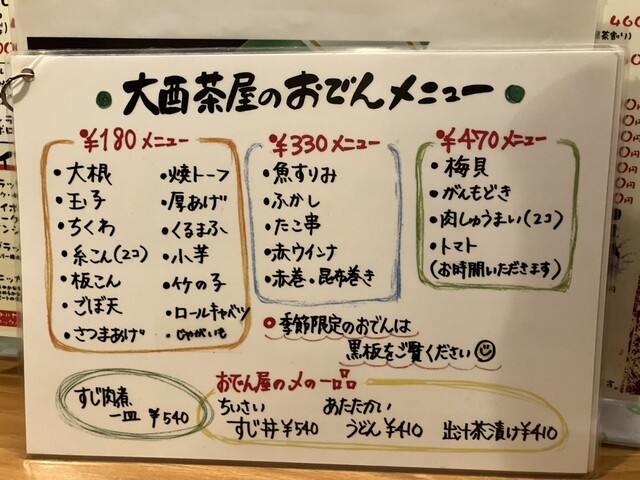 大西茶屋のおでんメニュー
¥180メニュー
・大根
・玉子
・ちくわ
・糸こん(2コ)
・板こん
・ごぼ天
・さつまあげ
・焼トーフ
・厚あげ
・くるまふ
・小芋
・竹の子
・ロールキャベツ
・じゃがいも
¥330メニュー
・魚すりみ
・ふかし
・たこ串
・赤ウインナ
・赤巻・昆布巻き
¥470メニュー
・梅貝
・がんもどき
・肉しゅうまい(2コ)
・トマト
(お時間いただきます)
季節限定のおでんは
黒板をご覧ください
すじ肉煮
一皿 ¥540
おでん屋の〆の一品
ちいさい
すじ丼¥540
あたたかい
うどん¥410
出汁茶漬け¥410